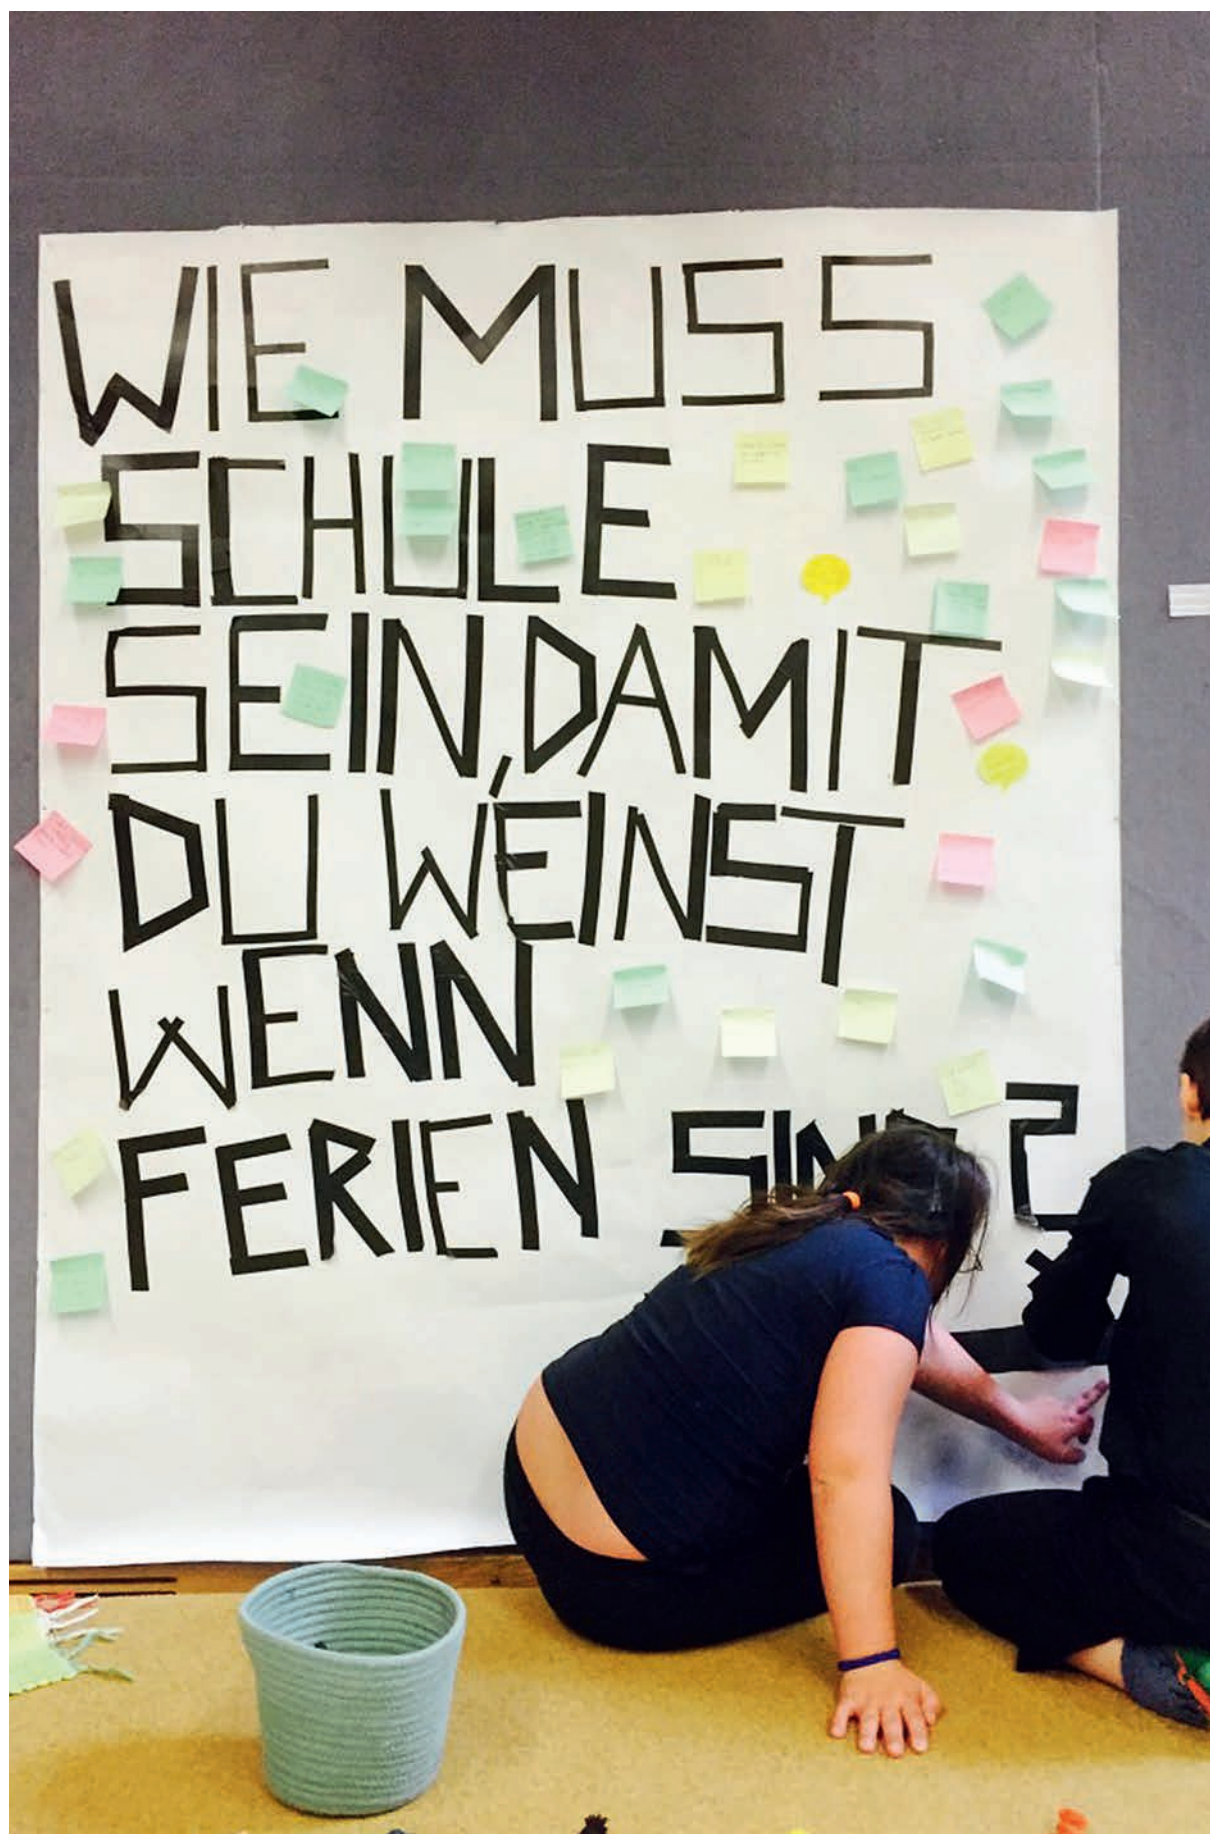 WIE MUSS
SCHULE
SEIN, DAMIT
DU WEINST
WENN
FERIEN SIND?